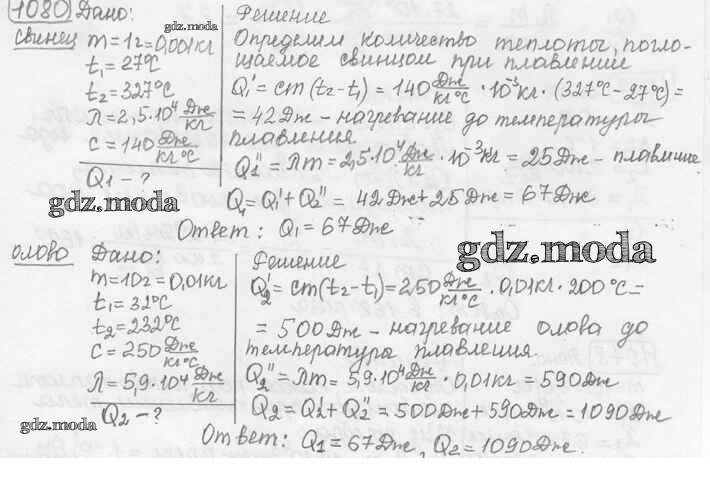 1080 Дано:
свинец m=1г=0,001кг
t₁=27°C
t₂=327°C
λ=2,5·10⁴ Дж/кг
c=140 Дж/кг°C
Q₁-?
gdz.moda
Решение
Определим количество теплоты, погло-
щаемое свинцом при плавлении
Q₁'=cm(t₂-t₁)=140 Дж/кг°C · 10⁻³кг · (327°C-27°C)=
=42Дж - нагревание до температуры
плавления
Q₁''=λm=2,5·10⁴ Дж/кг · 10⁻³кг = 25Дж - плавление
Q₁=Q₁'+Q₂''= 42Дж+25Дж = 67Дж
Ответ: Q₁=67Дж
gdz.moda
олово Дано:
m=10г=0,01кг
t₁=32°C
t₂=232°C
c=250 Дж/кг°C
λ=5,9·10⁴ Дж/кг
Q₂-?
gdz.moda
Решение
Q₂'=cm(t₂-t₁)=250 Дж/кг°C · 0,01кг · 200°C=
=500Дж - нагревание олова до
температуры плавления.
Q₂''=λm=5,9·10⁴ Дж/кг · 0,01кг = 590Дж
Q₂=Q₂'+Q₂''=500Дж+590Дж=1090Дж
Ответ: Q₁=67Дж, Q₂=1090Дж.